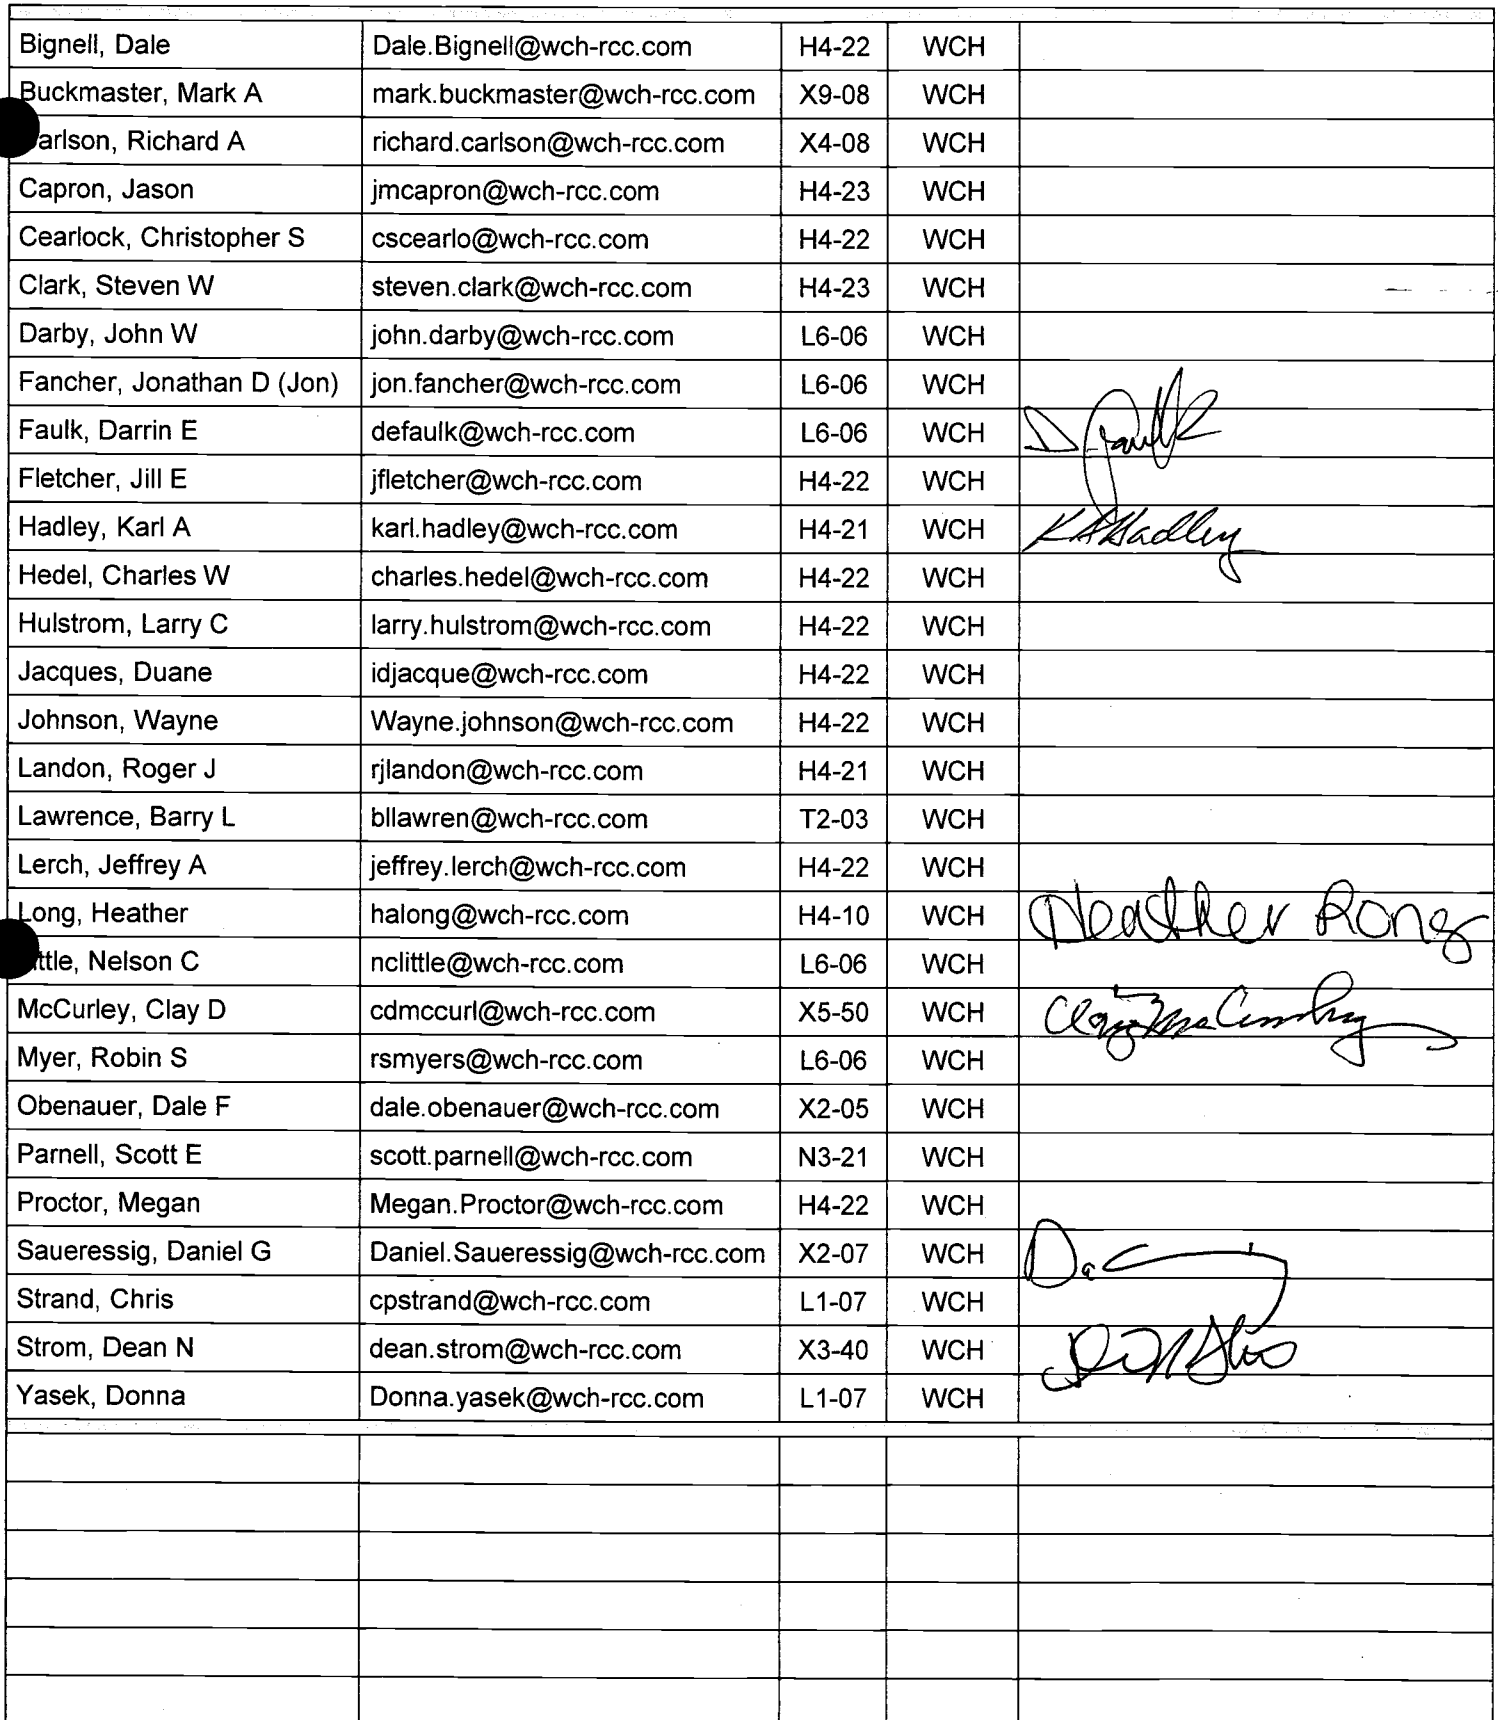 Bignell, Dale Dale.Bignell@wch-rcc.com H4-22 WCH
Buckmaster, Mark A mark.buckmaster@wch-rcc.com X9-08 WCH
arlson, Richard A richard.carlson@wch-rcc.com X4-08 WCH
Capron, Jason jmcapron@wch-rcc.com H4-23 WCH
Cearlock, Christopher S cscearlo@wch-rcc.com H4-22 WCH
Clark, Steven W steven.clark@wch-rcc.com H4-23 WCH
Darby, John W john.darby@wch-rcc.com L6-06 WCH
Fancher, Jonathan D (Jon) jon.fancher@wch-rcc.com L6-06 WCH
Faulk, Darrin E defaulk@wch-rcc.com L6-06 WCH D Faulk
Fletcher, Jill E jfletcher@wch-rcc.com H4-22 WCH
Hadley, Karl A karl.hadley@wch-rcc.com H4-21 WCH K A Hadley
Hedel, Charles W charles.hedel@wch-rcc.com H4-22 WCH
Hulstrom, Larry C larry.hulstrom@wch-rcc.com H4-22 WCH
Jacques, Duane idjacque@wch-rcc.com H4-22 WCH
Johnson, Wayne Wayne.johnson@wch-rcc.com H4-22 WCH
Landon, Roger J rjlandon@wch-rcc.com H4-21 WCH
Lawrence, Barry L bllawren@wch-rcc.com T2-03 WCH
Lerch, Jeffrey A jeffrey.lerch@wch-rcc.com H4-22 WCH
Long, Heather halong@wch-rcc.com H4-10 WCH Heather Long
ttle, Nelson C nclittle@wch-rcc.com L6-06 WCH
McCurley, Clay D cdmccurl@wch-rcc.com X5-50 WCH Clay McCurley
Myer, Robin S rsmyers@wch-rcc.com L6-06 WCH
Obenauer, Dale F dale.obenauer@wch-rcc.com X2-05 WCH
Parnell, Scott E scott.parnell@wch-rcc.com N3-21 WCH
Proctor, Megan Megan.Proctor@wch-rcc.com H4-22 WCH
Saueressig, Daniel G Daniel.Saueressig@wch-rcc.com X2-07 WCH
Strand, Chris cpstrand@wch-rcc.com L1-07 WCH
Strom, Dean N dean.strom@wch-rcc.com X3-40 WCH
Yasek, Donna Donna.yasek@wch-rcc.com L1-07 WCH